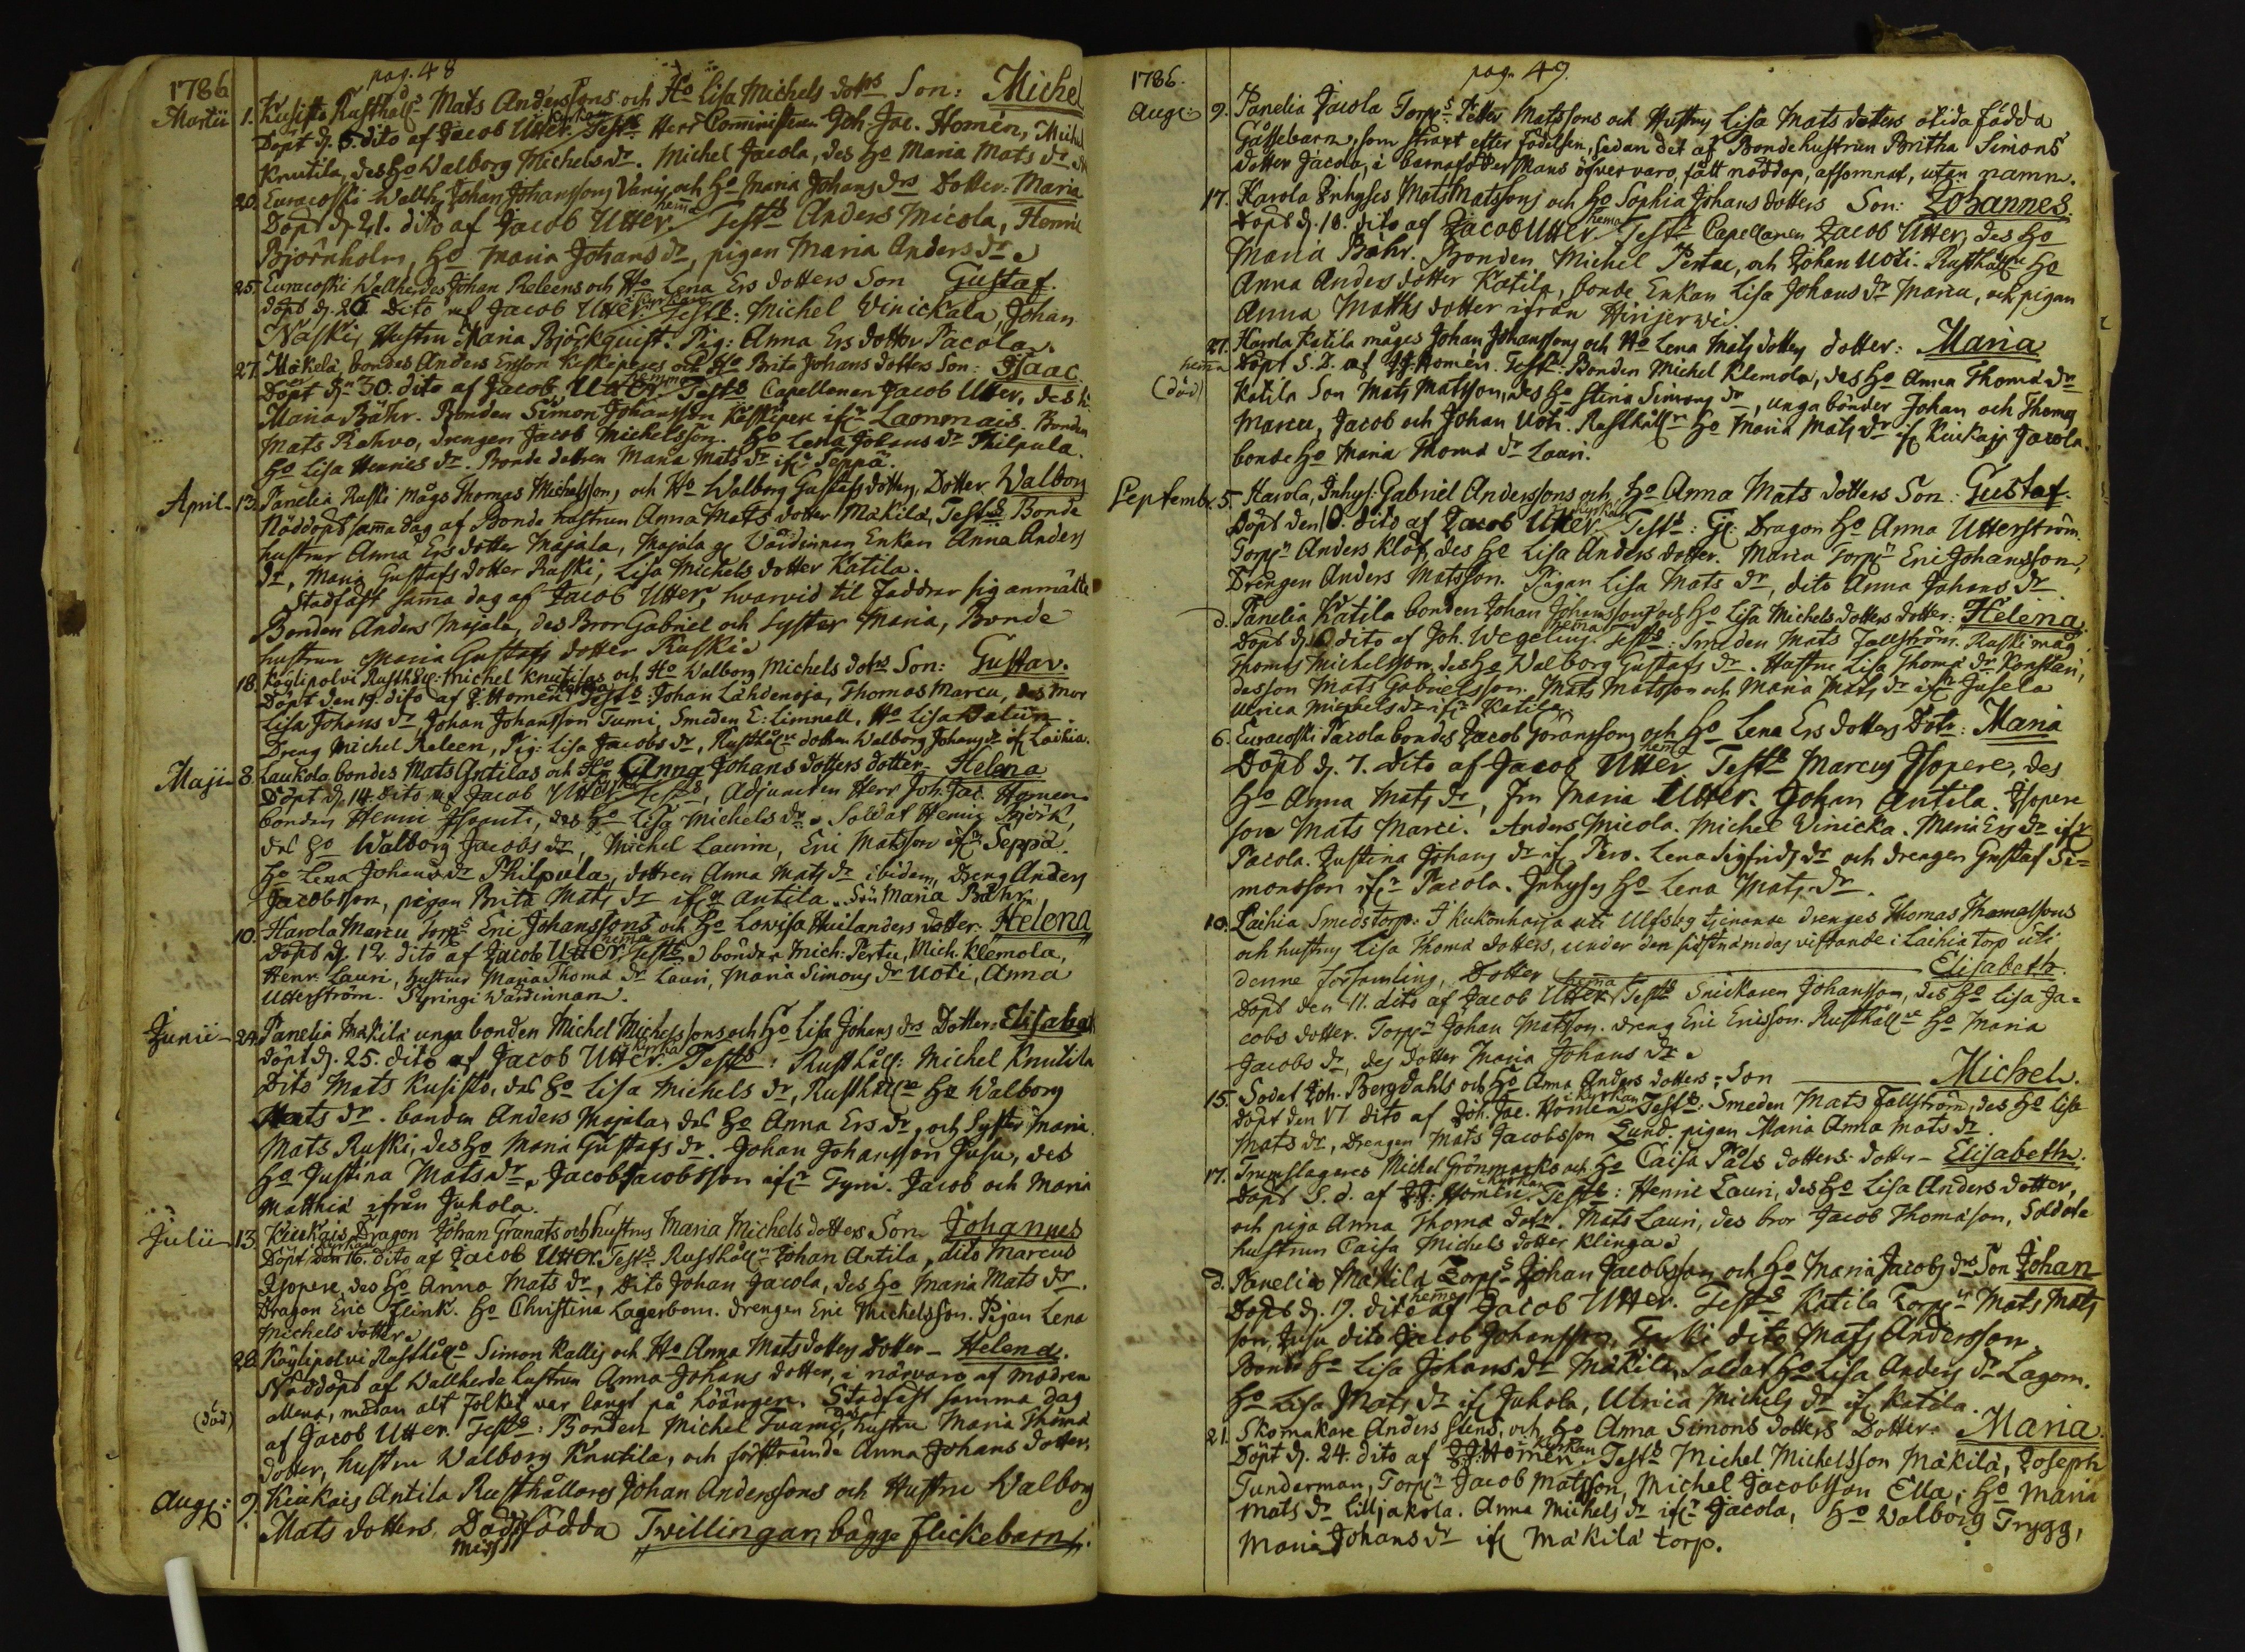 pag. 48
1786
Martii 1. Kusisto Rusthålls Mats Anderssons och Ho Lisa Michels dotrs Son: Michel
Döpt d. 5. dito af Jacob Utter. kyrkan Testes Herr Comministern Joh. Jac. Homén, Michel
Knutila, des Ho Walborg Michelsdr. Michel Jacola, des Ho Maria Mats dr
20. Euracoski Wallh. Johan Johanssons Vanis och Ho Maria Johans drs Dotter: Maria
Döpt d. 21. dito af Jacob Utter. hema Testes Anders Micola, Henric
Björnholm, Ho Maria Johans dr, pigan Maria Anders dr
25. Euracoski Wallherdes Johan Releens och Ho Lena Ers dotters Son Gustaf.
döpt d. 26 Dito af Jacob Utter i kyrkan Testes: Michel Vinickala, Johan
Naski, Hustru Maria Björkquist. Pig: Anna Ers dotter Pacola.
27. Mäkelä, bondes Anders Ersson Keskiperes och Ho Brita Johans dotters Son: Isaac.
Döpt d. 30. dito af Jacob Utter hemma Testes Capellanen Jacob Utter, des Ho
Maria Bähr. Bonden Simon Johansson Keskipere ifr Lammais. Bonden
Mats Rahvo, drengen Jacob Michelsson. Ho Lena Johans dr Philpula.
Ho Lisa Henrics dr. Bonde dottren Maria Mats dr ifr Seppä.
April. 13. Panelia Raski mågs Thomas Michelssons och Ho Walborg Gustafs dotters, Dotter Walborg
Nöddöpt sama dag af Bonde hustrun Anna Mats dotter Mäkilä, Testes Bonde
hustrur Anna Ers dotter Majala, Majala Värdinnan Enkan Anna Anders
dr, Maria Gustafs dotter Raski, Lisa Michels dotter Katila.
Stadfäst sama dag af Jacob Utter, hvarvid til Faddrar sig anmälte
Bonden Anders Majala, des Bror Gabriel och Syster Maria, Bonde
hustrun Maria Gustafs dotter Raski
18. Köylipolvi Rusthåll: Michel Knutilas och Ho Walborg Michels dotrs Son: Gustav.
Döpt den 19. dito af J. Homén kyrka Testes: Johan Lähdenoja, Thomas Marcu, des mor
Lisa Johans dr, Johan Johansson Tumi, Smeden E: Limnell, Ho Lisa Dalin.
Dreng Michel Releen, Pig: Lisa Jacobs dr, Rusthållre dotter Walborg Johans dr if Laihia.
Maji. 8. Laukola bondes Mats Antilas och Ho Anna Johans dotters dotter Helena
Döpt d. 14. dito af Jacob Utter Testes, Adjuncten Herr Joh. Jac. Homen
bonden Henric des Ho Lisa Michels dr. Soldat Henric Björk,
des Ho Walborg Jacobs dr, Michel Laurin, Eric Matsson ifr Seppä.
Ho Lena Johans dr Philpula, dottren Anna Mats dr ibidem, dreng Anders
Jacobsson, pigan Brita Mats dr ifr Antila. Maria Bähr.
10. Harola Marcu Torps Eric Johanssons och Ho Lovisa Huilanders dotter. Helena
döpt d. 12. dito af Jacob Utter hema Testes bönder Mich: Pertu, Mich. Klemola,
Henr: Lauri, hustrur Maria Thoma dr Lauri, Maria Simons dr Uoti, Anna
Utterström. Värdinnan.
Junii. 24. Panelia Mäkilä unga bonden Michel Michelssons och Ho Lisa Johans drs Dotter: Elisabet
döpt d. 25. dito af Jacob Utter. i kyrka Testes: Rusthåll: Michel Knutila
Dito Mats Kusisto, des Ho Lisa Michels dr, Rusthållre Ho Walborg
Mats dr. bonden Anders Majala, des Ho Anna Ers dr, och Syster Maria.
Mats Raski, des Ho Maria Gustafs dr. Johan Johansson Jusu, des
Ho Justina Mats dr. Jacob Jacobsson ifr Tyni. Jacob och Maria
Matthiä ifrån Juhola.
Julii 13. Kiukais Dragon Johan Granats och hustrus Maria Michels dotters Son Johannes
Döpt den 16. kyrkan dito af Jacob Utter. Testes Rusthållrn Johan Antila, dito Marcus
Isopere, des Ho Anna Mats dr, Dito Johan Jacola, des Ho Maria Mats dr.
Dragon Eric Flink. Ho Christina Lagerbom. drengen Eric Michelsson. Pigan Lena
Michels dotter.
20. Köylipolvi Rusthållrs Simon Kallis och Ho Anna Mats dotters Dotter - Helena.
(död) Nöddöpt af Wallherde hustrun Anna Johans dotter, i närvaro af modren
allena, medan alt Folket var långt på höängen. Stadfäst samma dag
af Jacob Utter. Testes: Bonden Michel des hustru Maria Thoma
dotter, hustru Walborg Knutila, och förstnämde Anna Johans dotter.
Augs: 9. Kiukais Antila Rusthållares Johan Anderssons och Hustru Walborg
Mats dotters Dödfödda Twillingar, bägge flickebarn.
pag. 49.
1786.
Augs 9. Panelia Jacola Torps: Petter Matssons och Hustrus Lisa Mats dotters otida födda
Gåssebarn, som straxt efter födelsen, sedan det af Bondehustrun Britha Simons
dotter Jacola, i barnafödderskans öfvervaro, fått nöddop, afsomnat, utan namn.
17. Harola Inhyses Mats Matssons och Ho Sophia Johans dotters Son: Johannes.
Döpt d. 18. dito af Jacob Utter hema Testes Capellanen Jacob Utter, des Ho
Maria Bähr. Bonden Michel Pertu, och Johan Uoti. Rusthållre Ho
Anna Anders dotter Katila, bonde Enkan Lisa Johans dr Marcu, och pigan
Anna Matths dotter ifrån Hinjerwi.
27. Harola Katila mågs Johan Johanssons och Ho Lena Mats dotters dotter: Maria
hema Döpt S. D. af JJ. Homén. Testes: Bonden Michel Klemola, des Ho Anna Thoma dr
(död) Katila Son Mats Matsson, des Ho Stina Simons dr, unga bönder Johan och Thomas
Marcu, Jacob och Johan Uoti. Rusthållrn Ho Maria Mats dr if Kiukais Jacola.
bonde Ho Maria Thoma dr Lauri.
Septembr. 5. Harola, Inhys: Gabriel Anderssons och Ho Anna Mats dotters Son: Gustaf.
Döpt den 10. dito af Jacob Utter i kyrkan Testes: Gl. Dragon Ho Anna Utterström.
Torprn Anders Klöf, des Ho Lisa Anders dotter. Marcu Torprn Eric Johansson,
Drengen Anders Matsson. Pigan Lisa Mats dr, dito Anna Johans dr.
d. Panelia Katila bonden Johan Johanssons och Ho Lisa Michels dotters dotter: Helena.
Döpt d. 10 dito af Joh. Wegelius. hema Testes: Smeden Mats Fallström. Raski måg
Thomas Michelsson, des Ho Walborg Gustafs dr. Hustru Lisa Thoma dr Konstari,
desson Mats Gabrielsson. Mats Matsson och Maria Mats dr ifr Jusela
Ulrica Michels dr ifr Katila.
6. Euracoski Pacola bondes Jacob Göranssons och Ho Lena Ers dotters Dotr: Maria
Döpt d. 7. dito af Jacob Utter hema Testes Marcus Isopere, des
Ho Anna Mats dr, Fru Maria Utter. Johan Antila. Isopere
son Mats Marci. Anders Micola. Michel Vinicka. Maria Ers dr ifr
Pacola. Justina Johans dr if Pero. Lena Sigfrids dr och drengen Gustaf Si=
monsson ifr Pacola. Inhyses Ho Lena Mats dr.
10. Laihia Smedstorp: I Kukonharja uti Ulfsby tjenande drenges Thomas Thomassons
och hustrus Lisa Thoma dotters, under den sistnämdas vistande i Laihia torp uti
denne församling, Dotter Elisabeth.
Döpt den 11. dito af Jacob Utter hema Testes Snickaren Johansson, des Ho Lisa Ja=
cobs dotter. Torprn Johan Matsson. dreng Eric Ericsson. Rusthållre Ho Maria
Jacobs dr, des dotter Maria Johans dr
15. Sodat Joh. Bergdahls och Ho Anna Anders dotters - Son Michel.
döpt den 17 dito af Joh. Jac. Homén i kyrkan Testes: Smeden Mats Fallström, des Ho Lisa
Mats dr, Drengen Mats Jacobsson Lund. pigan Maria Anna Mats dr.
17. Trumslagares Michel Grönmarks och Ho Caisa Påls dotters dotter - Elisabeth.
Döpt S. d. af JJ: Homén. kyrkan Testes: Henric Lauri, des Ho Lisa Anders dotter,
och piga Anna Thoma dotr. Mats Lauri, des bror Jacob Thomasson, Soldate
hustrun Caisa Michels dotter Klinga
d. Panelia Mäkilä Torps Johan Jacobssons och Ho Maria Jacobs drs Son Johan
Döpt d. 19. dito hema af Jacob Utter. Testes Katila Torprn Mats Mats
son, Jusu dito Jacob Johansson, dito Mats Andersson,
Bonde Ho Lisa Johans dr Mäkilä, Soldat Ho Lisa Anders dr Lagom.
Ho Lisa Mats dr if Juhola, Ulrica Michels dr if Katila.
21. Skomakare Anders Glens, och Ho Anna Simons dotters Dotter. Maria.
Döpt d. 24. dito af JJ: Homén. kyrkan Testes Michel Michelsson Mäkilä, Joseph
Tunderman, Torprn Jacob Matsson, Michel Jacobsson Ella, Ho Maria
Mats dr Liljakola. Anna Michels dr ifr Jacola, Ho Walborg Trygg,
Maria Johans dr if Mäkilä torp.